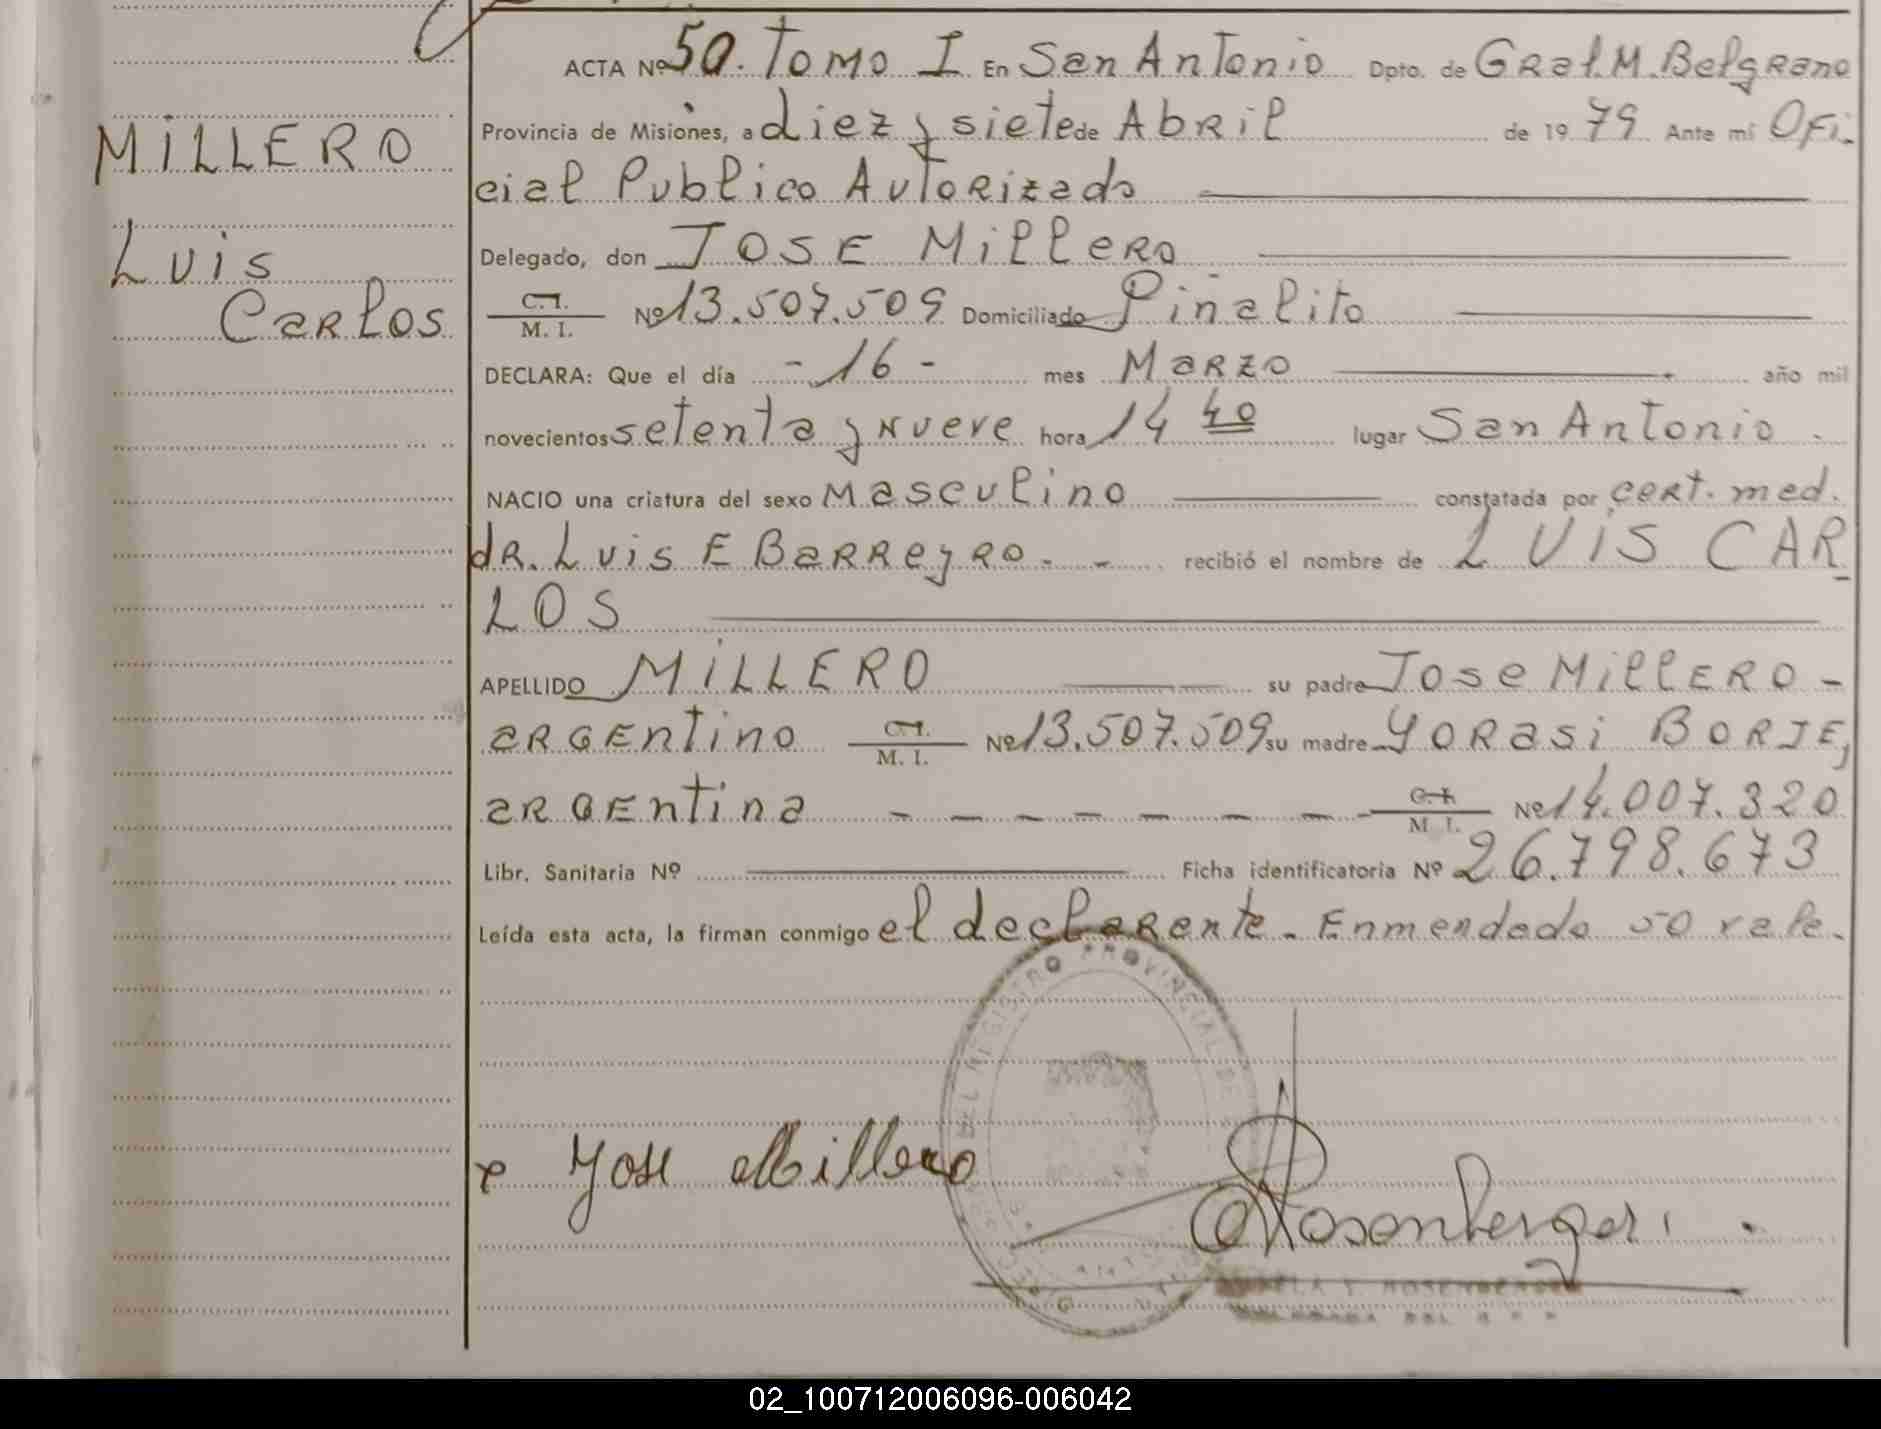 ACTA Nº 50. Tomo I En San Antonio Dpto. de Gral. M. Belgrano
Provincia de Misiones, a diez y siete de Abril de 1979 Ante mí Ofi-
cial Publico Autorizado
Delegado, don JOSE Millero
C.I. M. I. Nº 13.507.509 Domiciliado Piñalito
DECLARA: Que el día -16- mes Marzo año mil
novecientos setenta y nueve hora 14 40 lugar San Antonio.
NACIO una criatura del sexo Masculino constatada por cert. med.
dR. Luis E Barreyro - - recibió el nombre de LUIS CAR-
LOS
APELLIDO MILLERO su padre Jose Millero -
argentino C.I. M. I. Nº 13.507.509 su madre Yorasi BORJE,
argentina - - - - - - - - C.I. M. I. Nº 14.007.320
Libr. Sanitaria Nº Ficha identificatoria Nº 26.798.673
Leída esta acta, la firman conmigo el declarante. Enmendado 50 vale.
MILLERO
Luis
Carlos
Jose Millero
Rosenberger
DEL REGISTRO PROVINCIAL DE
ROSENBERGER
02_100712006096-006042